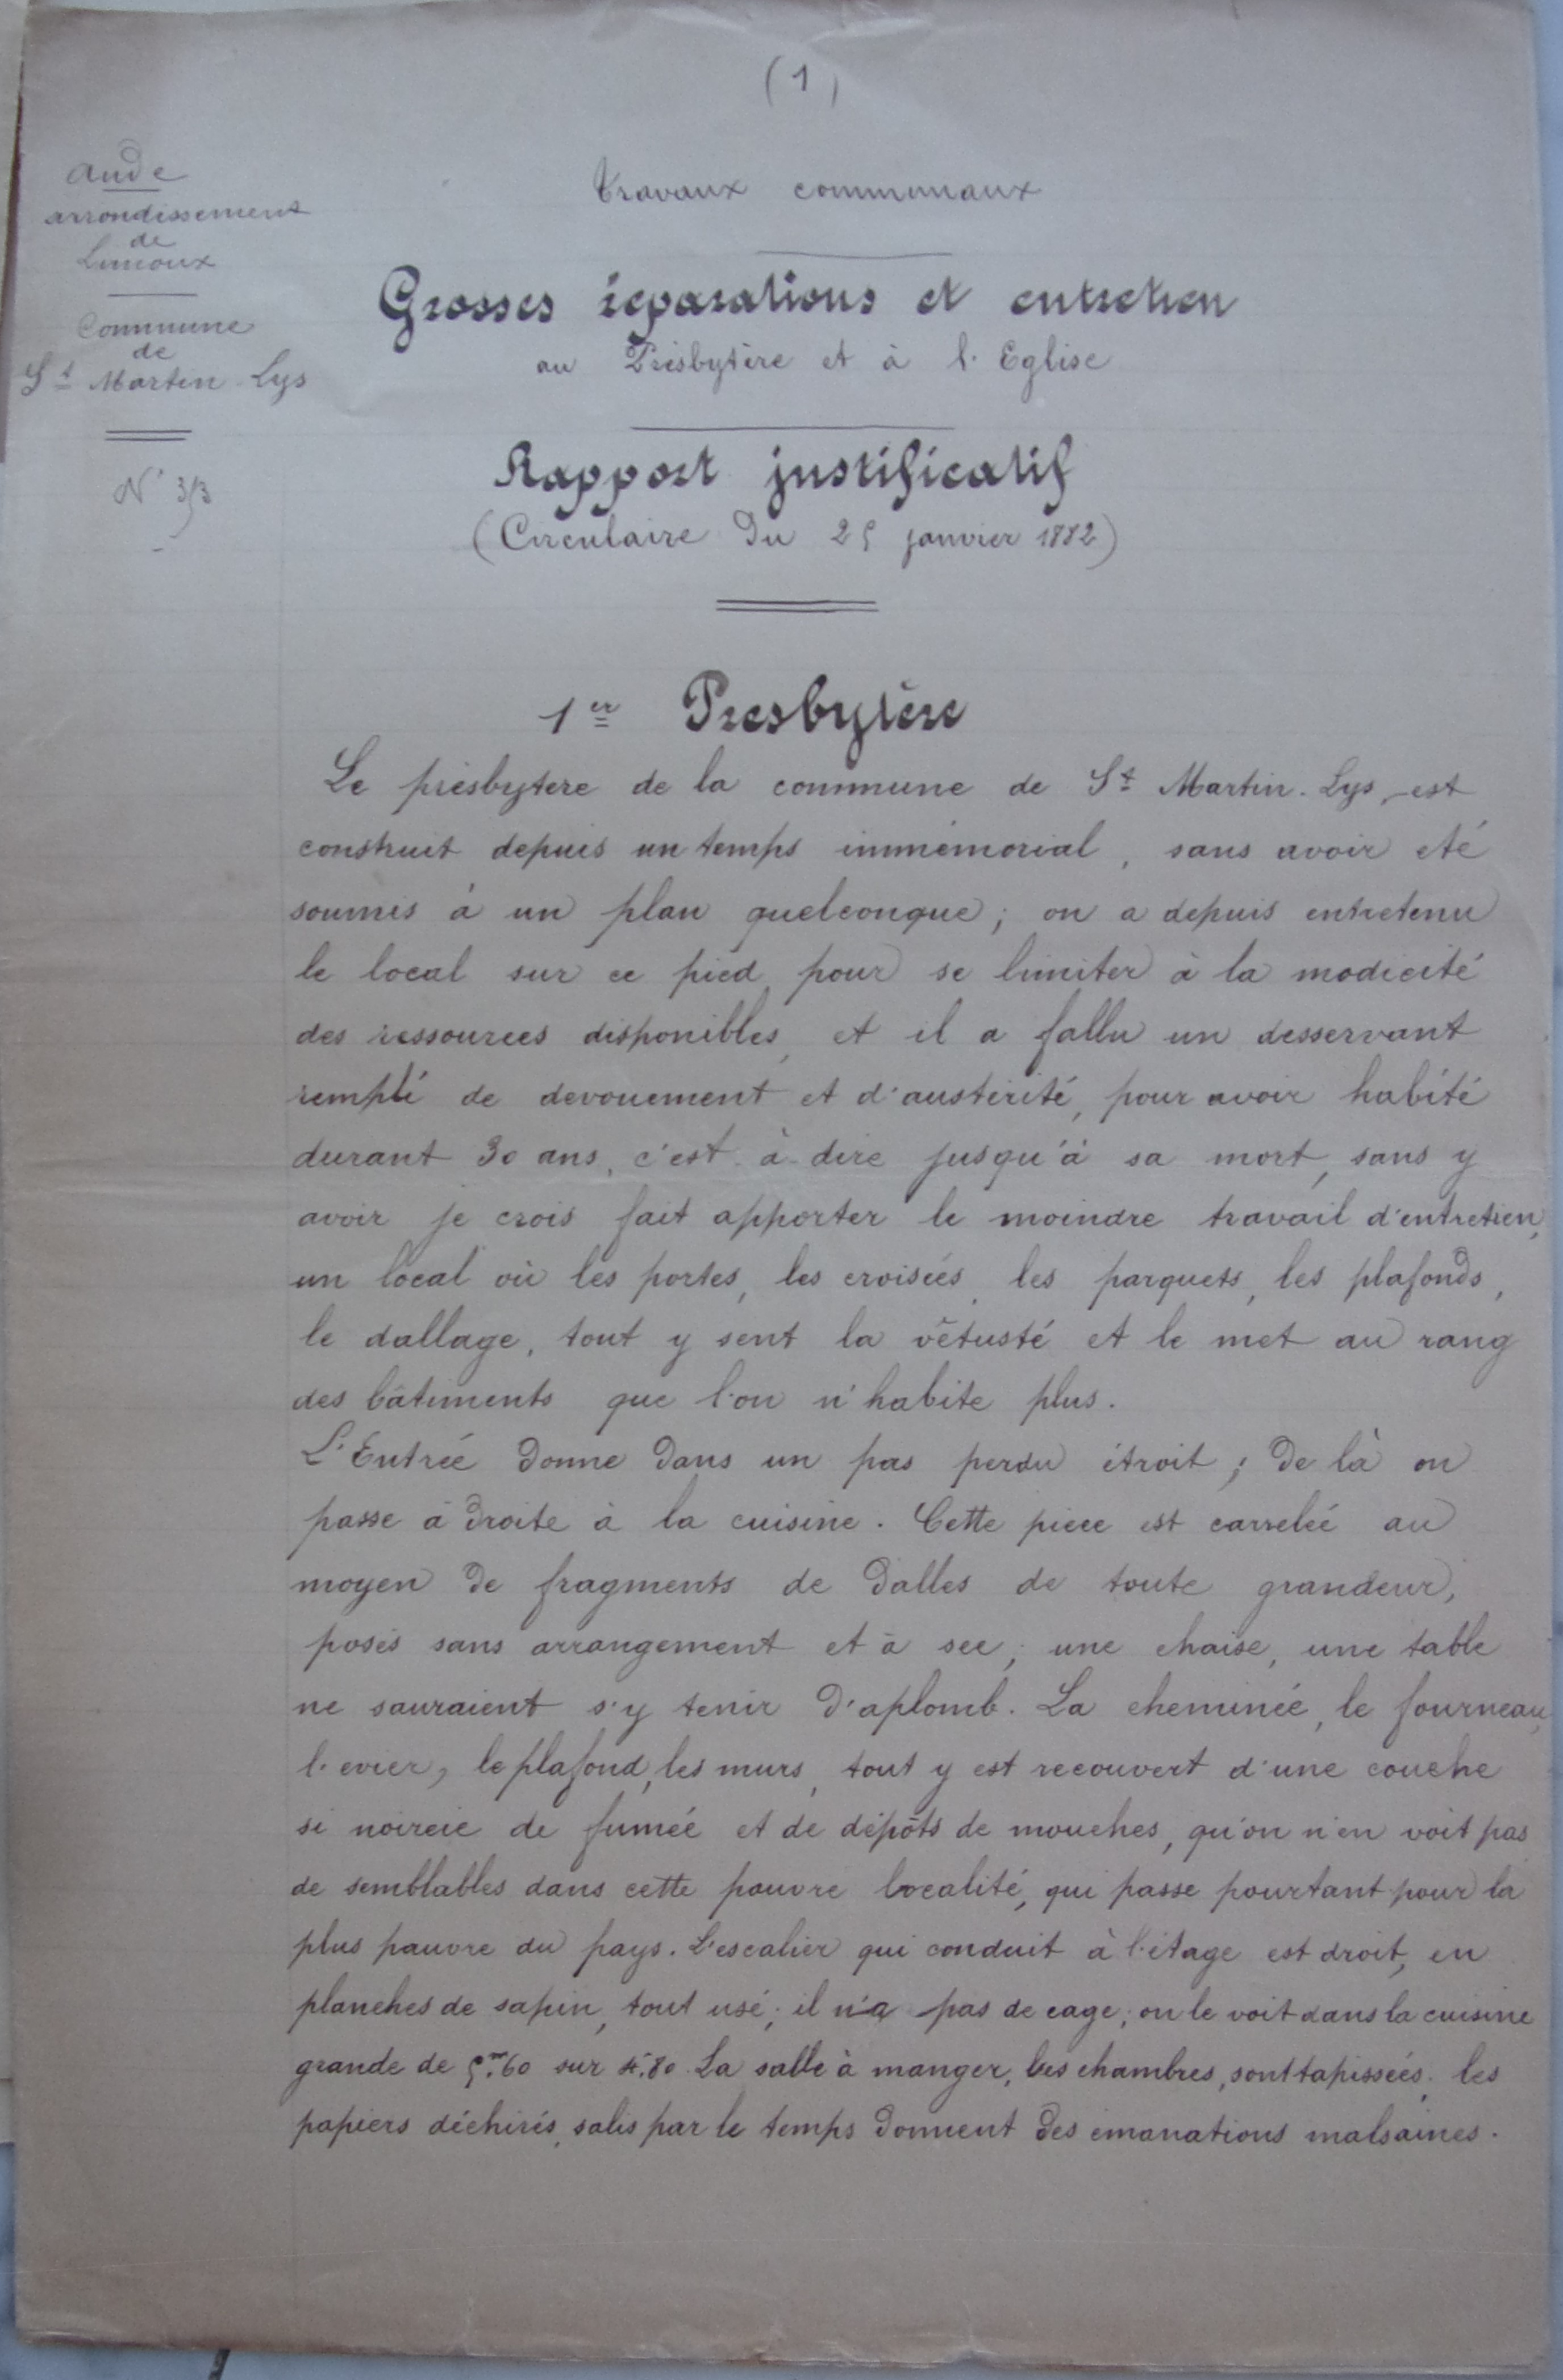 (1)
Aude
arrondissement
de
Limoux
Commune
de
St Martin-Lys
N°
Travaux communaux
Grosses réparations et entretien
au Presbytère et à l'Eglise
Rapport justificatif
(Circulaire du 25 janvier 1882)
1er Presbytère
Le présbytere de la commune de St Martin-Lys, est
construit depuis un temps immémorial, sans avoir eté
soumis à un plan quelconque; on a depuis entretenu
le local sur ce pied, pour se limiter à la modicité
des ressources disponibles, et il a fallu un desservant
rempli de devouement et d'austérité, pour avoir habité
durant 30 ans, c'est-à-dire jusqu'à sa mort, sans y
avoir je crois fait apporter le moindre travail d'entretien,
un local où les portes, les croisées, les parquets, les plafonds,
le dallage, tout y sent la vêtusté et le met au rang
des bâtiments que l'on n'habite plus.
L'Entrée donne dans un pas perdu étroit; de là on
passe à droite à la cuisine. Cette piece est carrelée au
moyen de fragments de dalles de toute grandeur,
posés sans arrangement et à sec; une chaise, une table
ne sauraient s'y tenir d'aplomb. La cheminée, le fourneau,
l'evier, le plafond, les murs, tout y est recouvert d'une couche
si noircie de fumée et de dépôts de mouches, qu'on n'en voit pas
de semblables dans cette pauvre localité, qui passe pourtant pour la
plus pauvre du pays. L'escalier qui conduit à l'étage est droit, en
planches de sapin, tout usé; il n'a pas de cage; on le voit dans la cuisine
grande de 5m.60 sur 4.80. La salle à manger, les chambres, sont tapissées, les
papiers déchirés, salis par le temps donnent des émanations malsaines.